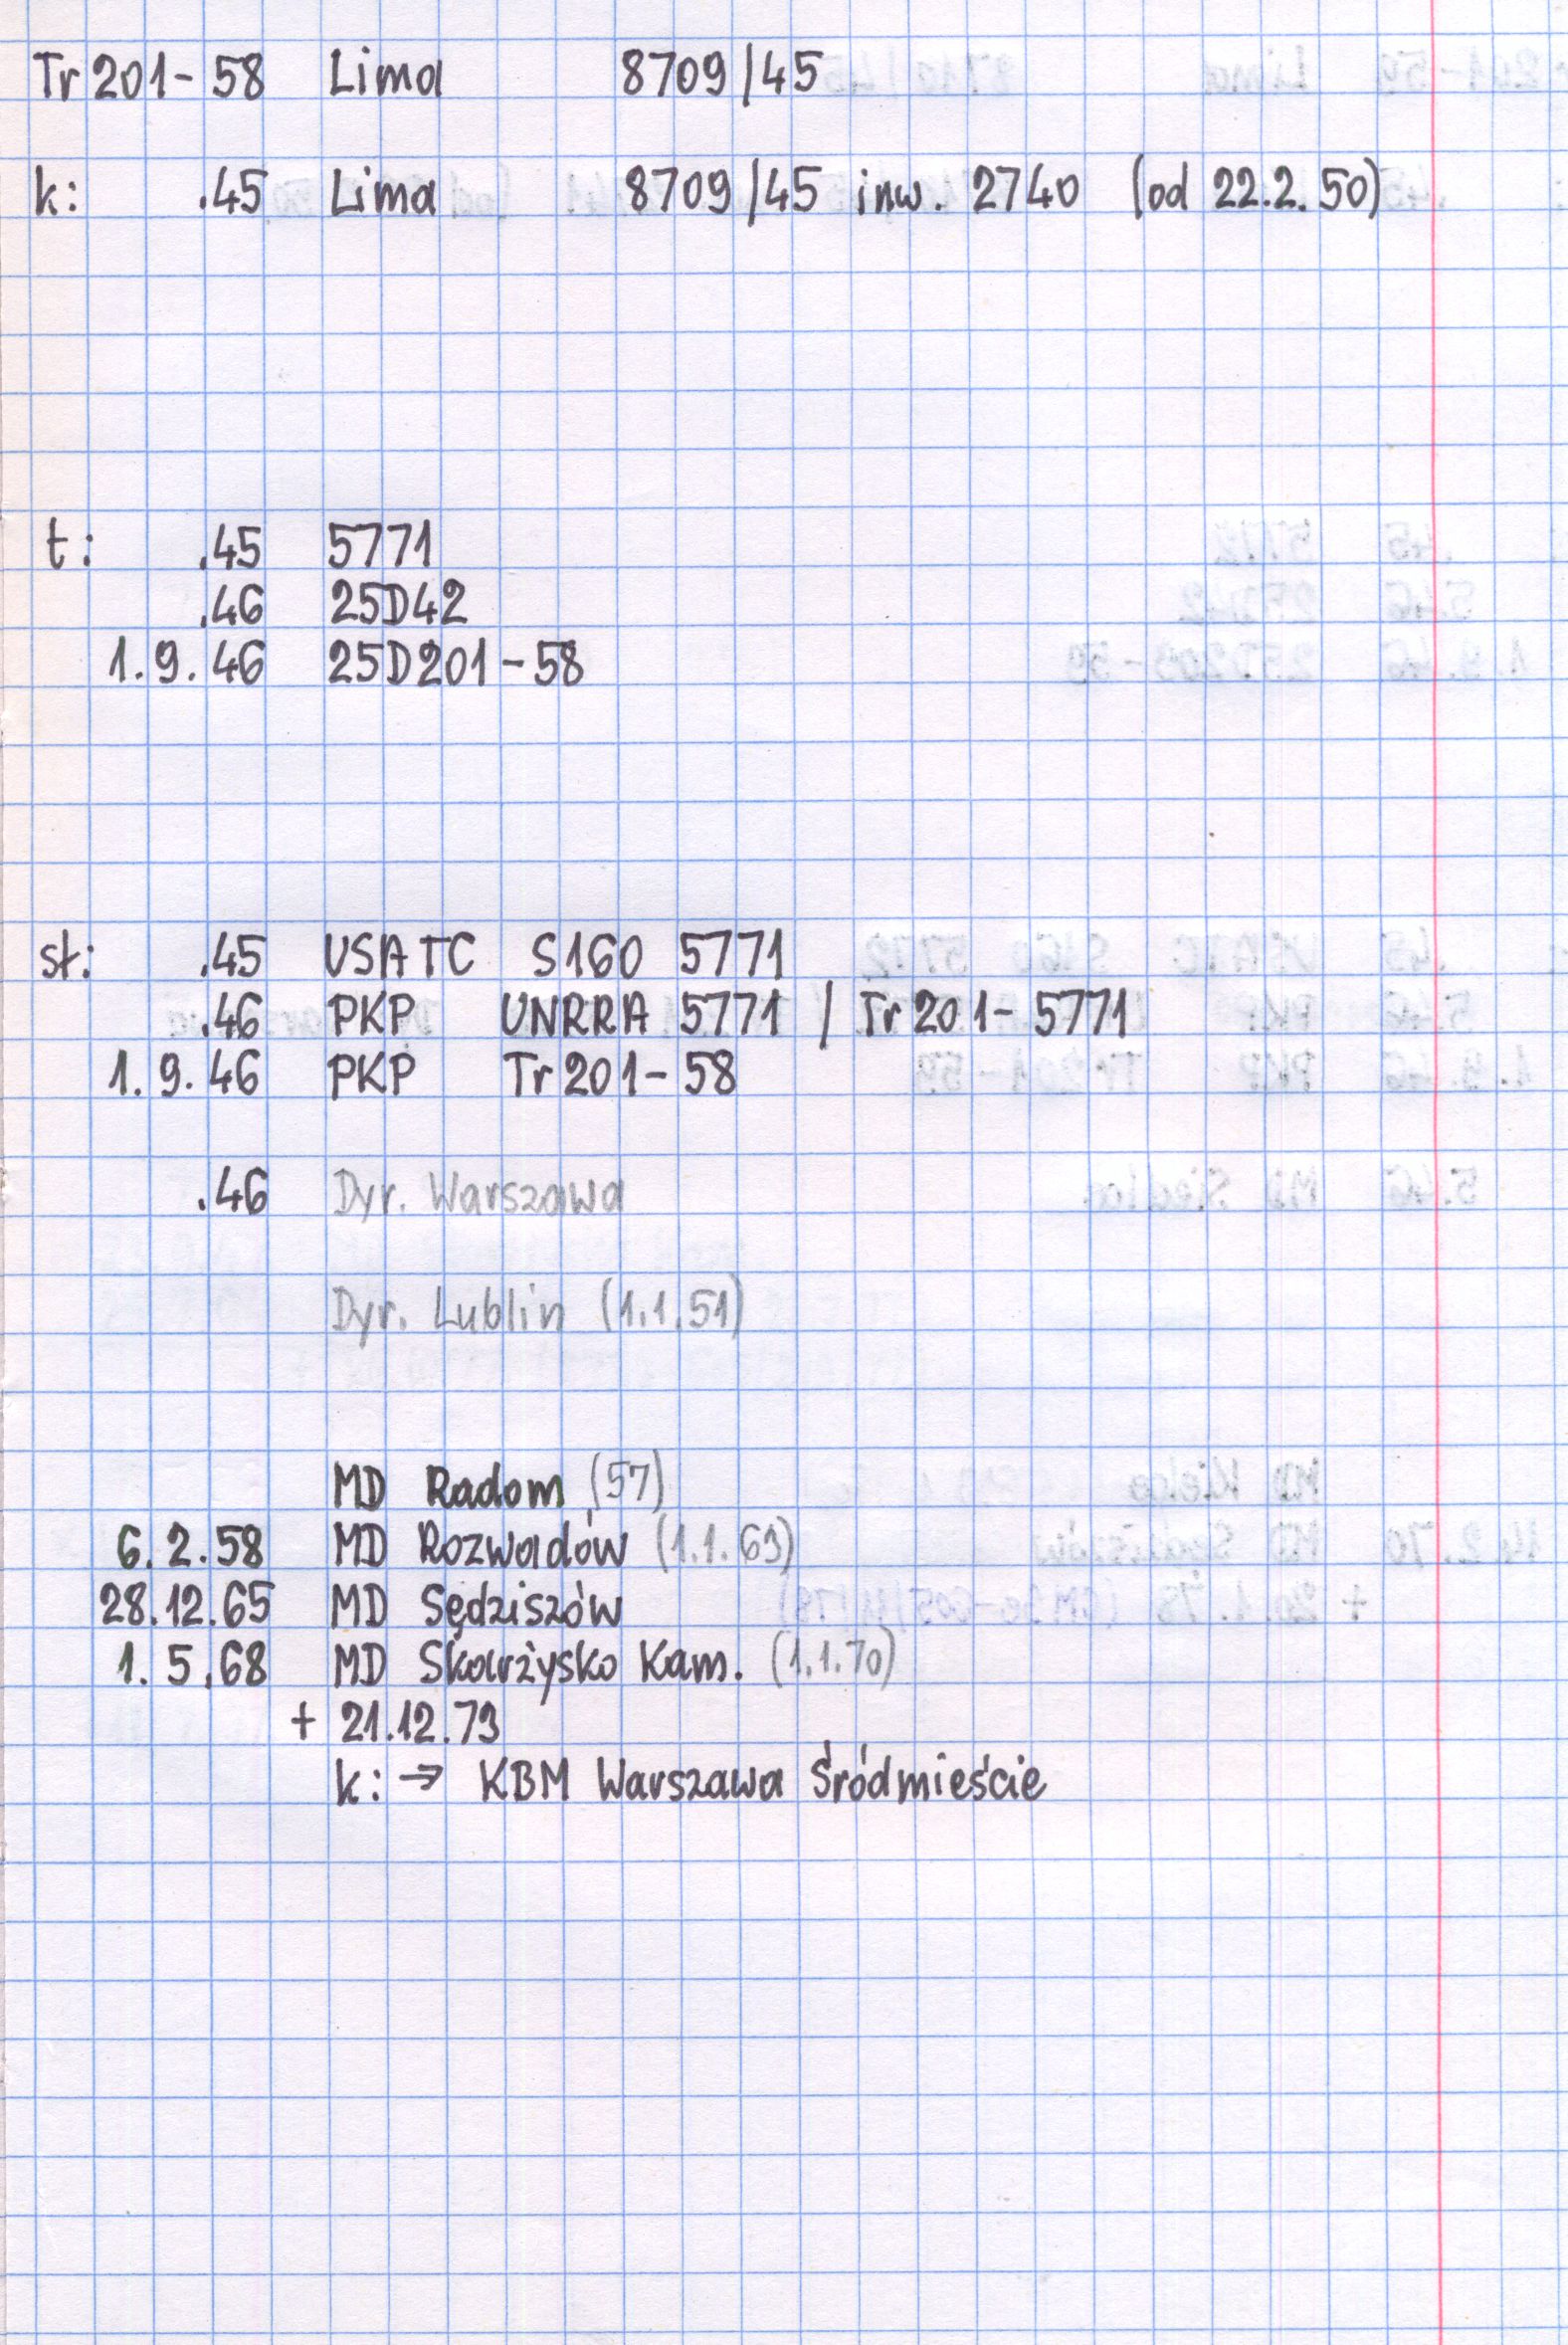 Tr 201-58 Lima 8709/45
k: .45 Lima 8709/45 inw. 2740 (od 22.2.50)
t: .45 5771
.46 25D42
1.9.46 25D201-58
sł: .45 USATC S160 5771
.46 PKP UNRRA 5771 / Tr 201-5771
1.9.46 PKP Tr 201-58
.46 Dyr. Warszawa
Dyr. Lublin (1.1.51)
MD Radom (57)
6.2.58 MD Rozwadów (1.1.63)
28.12.65 MD Sędziszów
1.5.68 MD Skarżysko Kam. (1.1.70)
+ 21.12.73
k: → KBM Warszawa Śródmieście